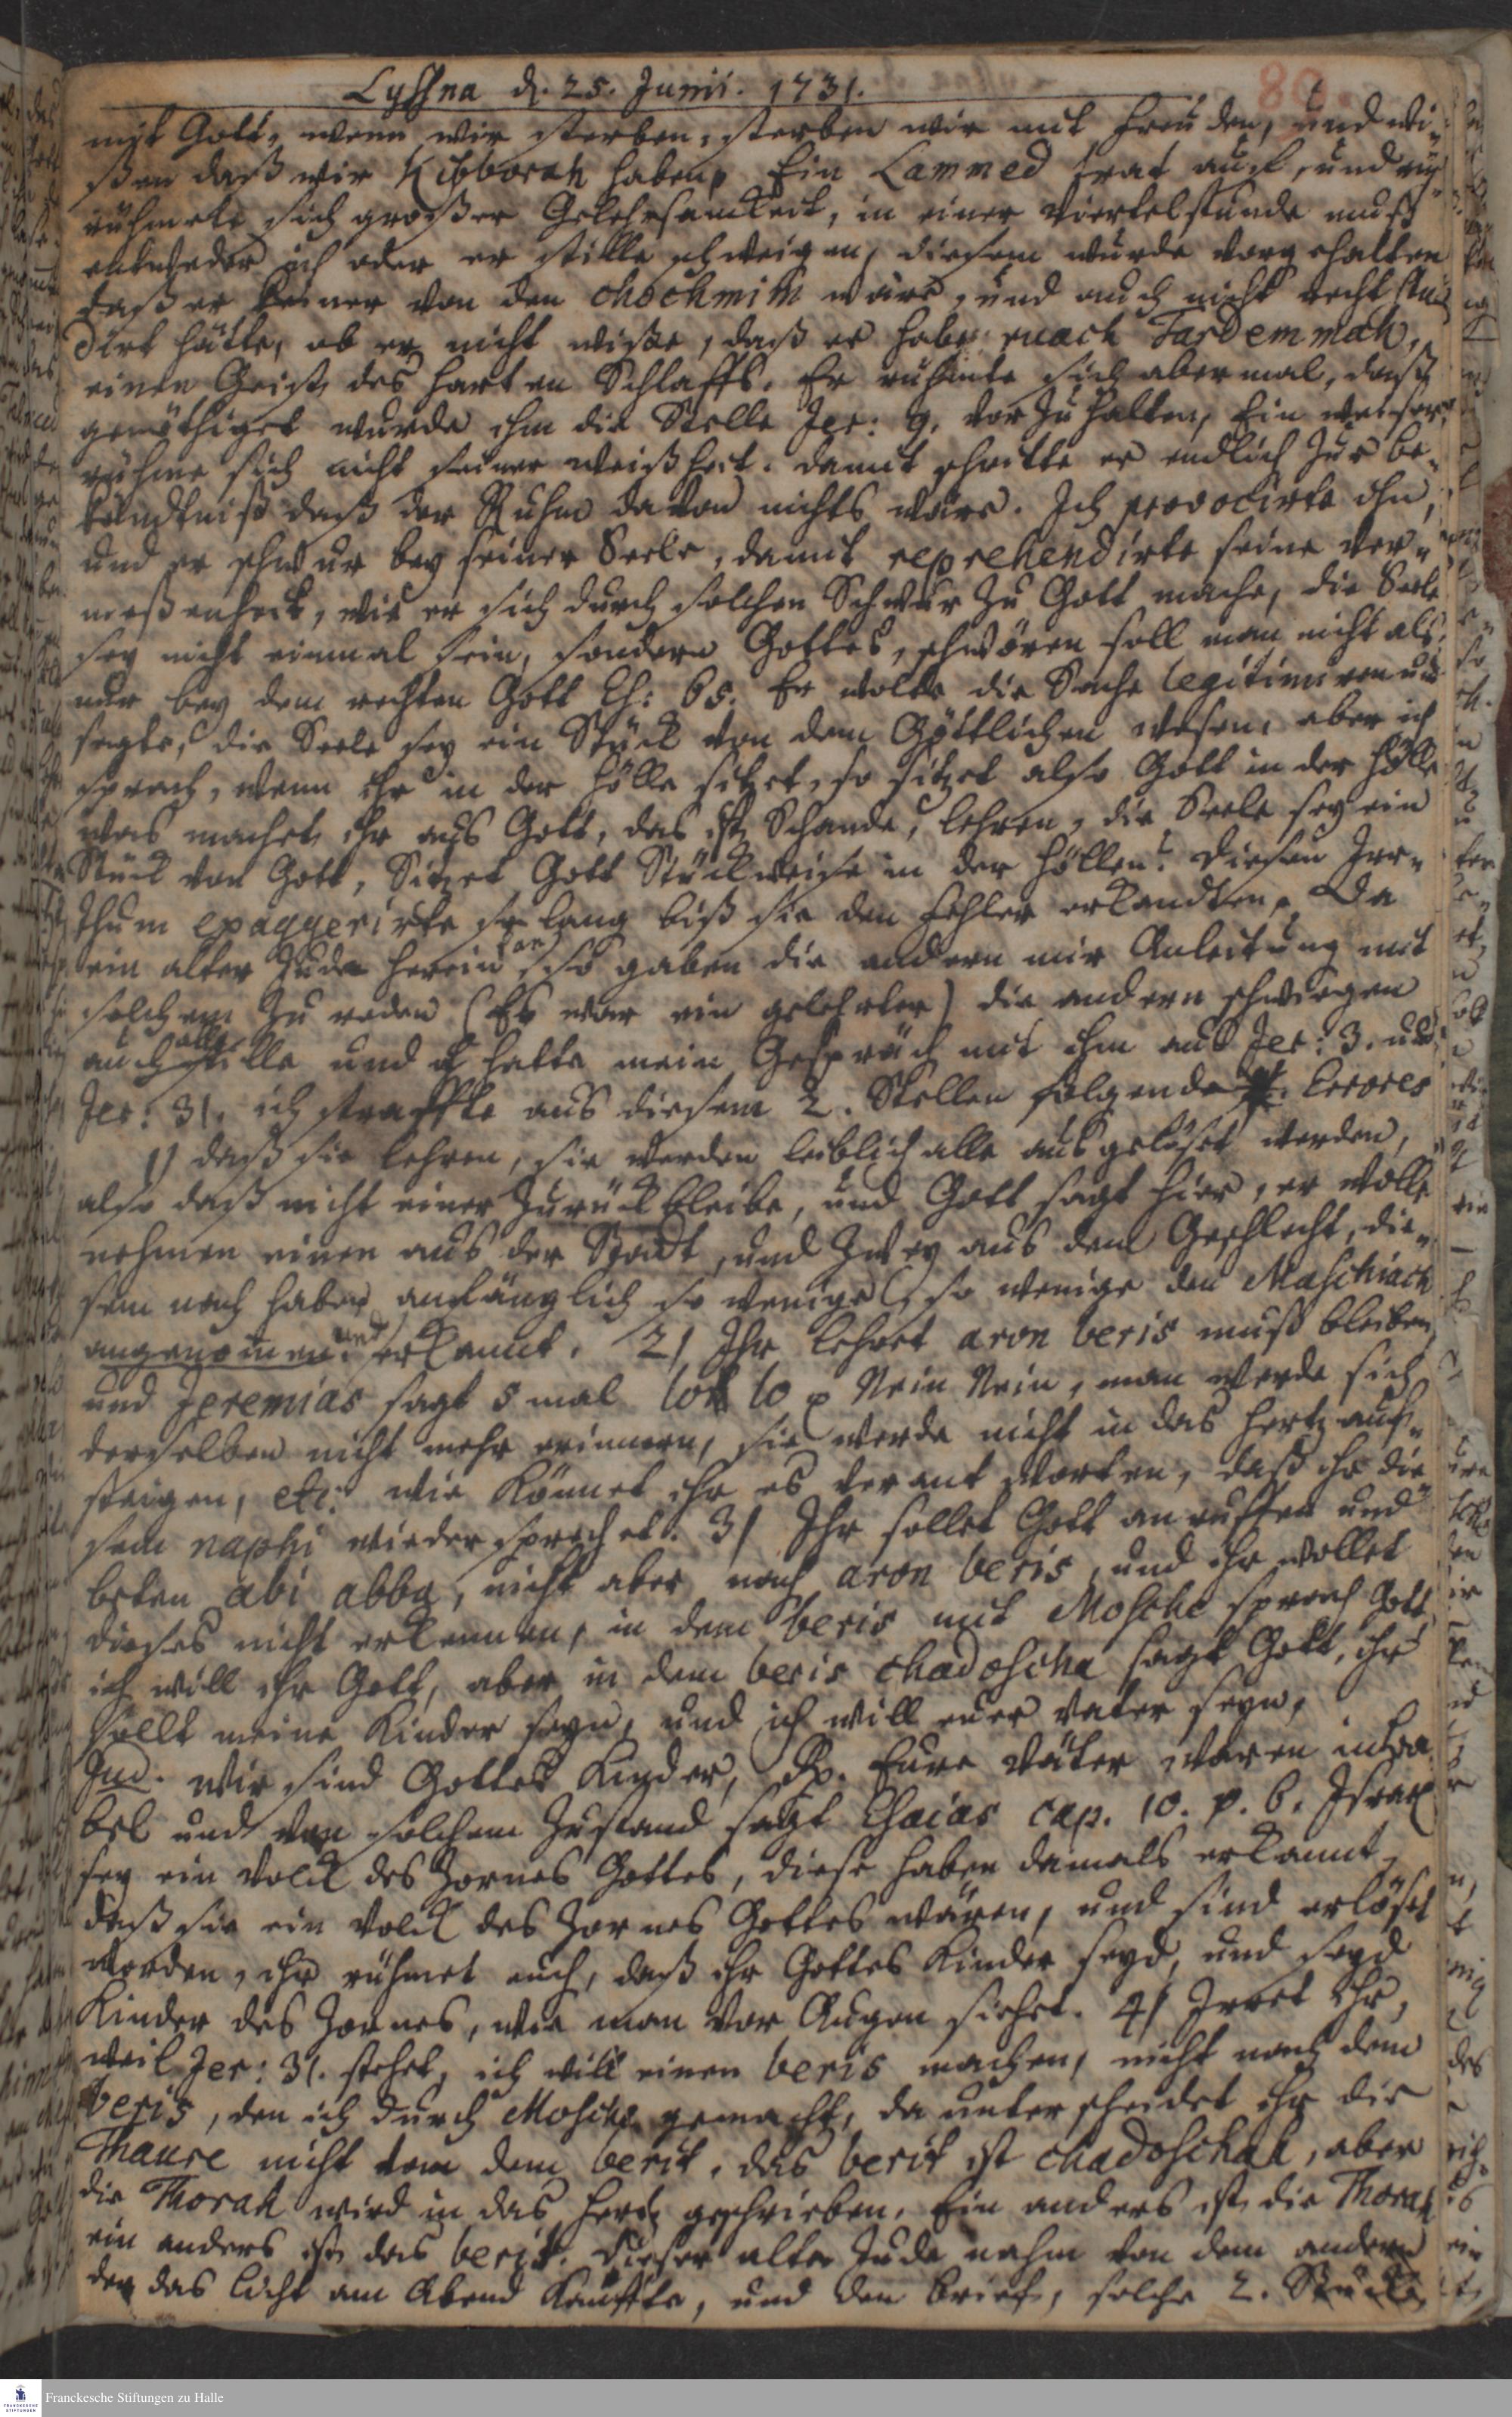 Lyssna d. 25. Junii. 1731.
80.
mit Gott, wenn wir sterben, sterben wir mit Freuden, und wi-
ßen daß wir Kibborah haben. Ein Lammed trat auf, und
rühmete sich großer Gelehrsamkeit, in einer viertelstunde muß
entweder ich oder er stille schweigen, diesem wurde vorgehalten
daß er keiner von den chochmim wäre, und auch nicht recht stu-
dirt hätte, ob er nicht wiße, daß er habe ruach Tardemmah,
einen Geist des harten Schlaffs. Er rühmte sich abermal, daß
genöthiget wurde ihm die Stelle Jer: 9. vorzuhalten, Ein weiser
rühme sich nicht seiner weißheit. damit schritte er endlich zur be-
kändtniß daß der Ruhm davon nichts wäre. Ich provocirte ihn,
und er schwur bey seiner Seele, damit reprehendirte seine ver-
meßenheit, wie er sich durch solchen Schwur zu Gott mache, die Seele
sey nicht einmal sein, sondern Gottes, schwören soll man nicht als
nur bey dem rechten Gott Es: 65. Er wolte die Sache legitimiren und
sagte, die Seele sey ein Stück von dem Göttlichen wesen, aber ich
sprach, wenn ihr in der Hölle sitzet, so sitzet also Gott in der Hölle
was machet ihr aus Gott, das ist Schande, lehren, die Seele sey ein
Stück von Gott, Sitzet Gott Stückweise in der Höllen? diesen Irr-
thum exaggerirte so lang biß sie den Fehler erkandten. Da
ein alter Jude herein kam, so gaben die andern mir Anleitung mit
solchem zu reden (Es war ein gelehrter) die andern schwiegen
auch alle stille und ich hatte mein Gespräch mit ihm aus Jer: 3. und
Jer: 31. ich straffte aus diesem 2. Stellen folgende Errores
1) daß sie lehren, sie werden leiblich alle ausgelöset werden,
also daß nicht einer zurück bleibe, und Gott sagt hier, er wolle
nehmen einen aus der Stadt, und zwey aus dem Geschlecht, die-
sem nach haben anfänglich so wenige, so wenige den Maschiach
angenommen und erkannt. 2) Ihr lehret aron beris muß bleiben
und Jeremias sagt 5 mal lo lo Nein Nein, man werde sich
derselben nicht mehr erinnern, sie werde nicht in das Hertz auf-
steigen, etc: wie könnet ihr es verantworten, daß ihr die-
sem naphi wiedersprechet. 3) Ihr sollet Gott anruffen und
beten abi abba, nicht aber nach aron beris, und ihr wollet
dieses nicht erkennen, in dem beris mit Mosche sprach Gott
ich will ihr Gott, aber in dem beris chadoscha sagt Gott, ihr
sollt meine Kinder seyn, und ich will euer vater seyn,
Jud. wir sind Gottes Kinder, Rx. Eure Väter waren in Ba-
bel und von solchem Zustand sagt Esaias cap. 10. v. 6. Israel
sey ein Volck des Zornes Gottes, diese haben damals erkannt,
daß sie ein Volck des Zornes Gottes wären, und sind erlöset
worden, ihr rühmet euch, daß ihr Gottes Kinder seyd, und seyd
Kinder des Zornes, wie man vor Augen siehet. 4) Irret ihr,
weil Jer: 31. stehet, ich will einen beris machen, nicht nach dem
beris, den ich durch Mosche gemacht, da unterscheidet ihr die
Thaure nicht von dem berit, das berit ist chadoschah, aber
die Thorah wird in das Hertz geschrieben, Ein anders ist die Thorah
ein anders ist das berit. Dieser alte Jude nahm von dem andern
der das Licht am Abend kauffte, und den brief, solche 2. Stücke
Franckesche Stiftungen zu Halle